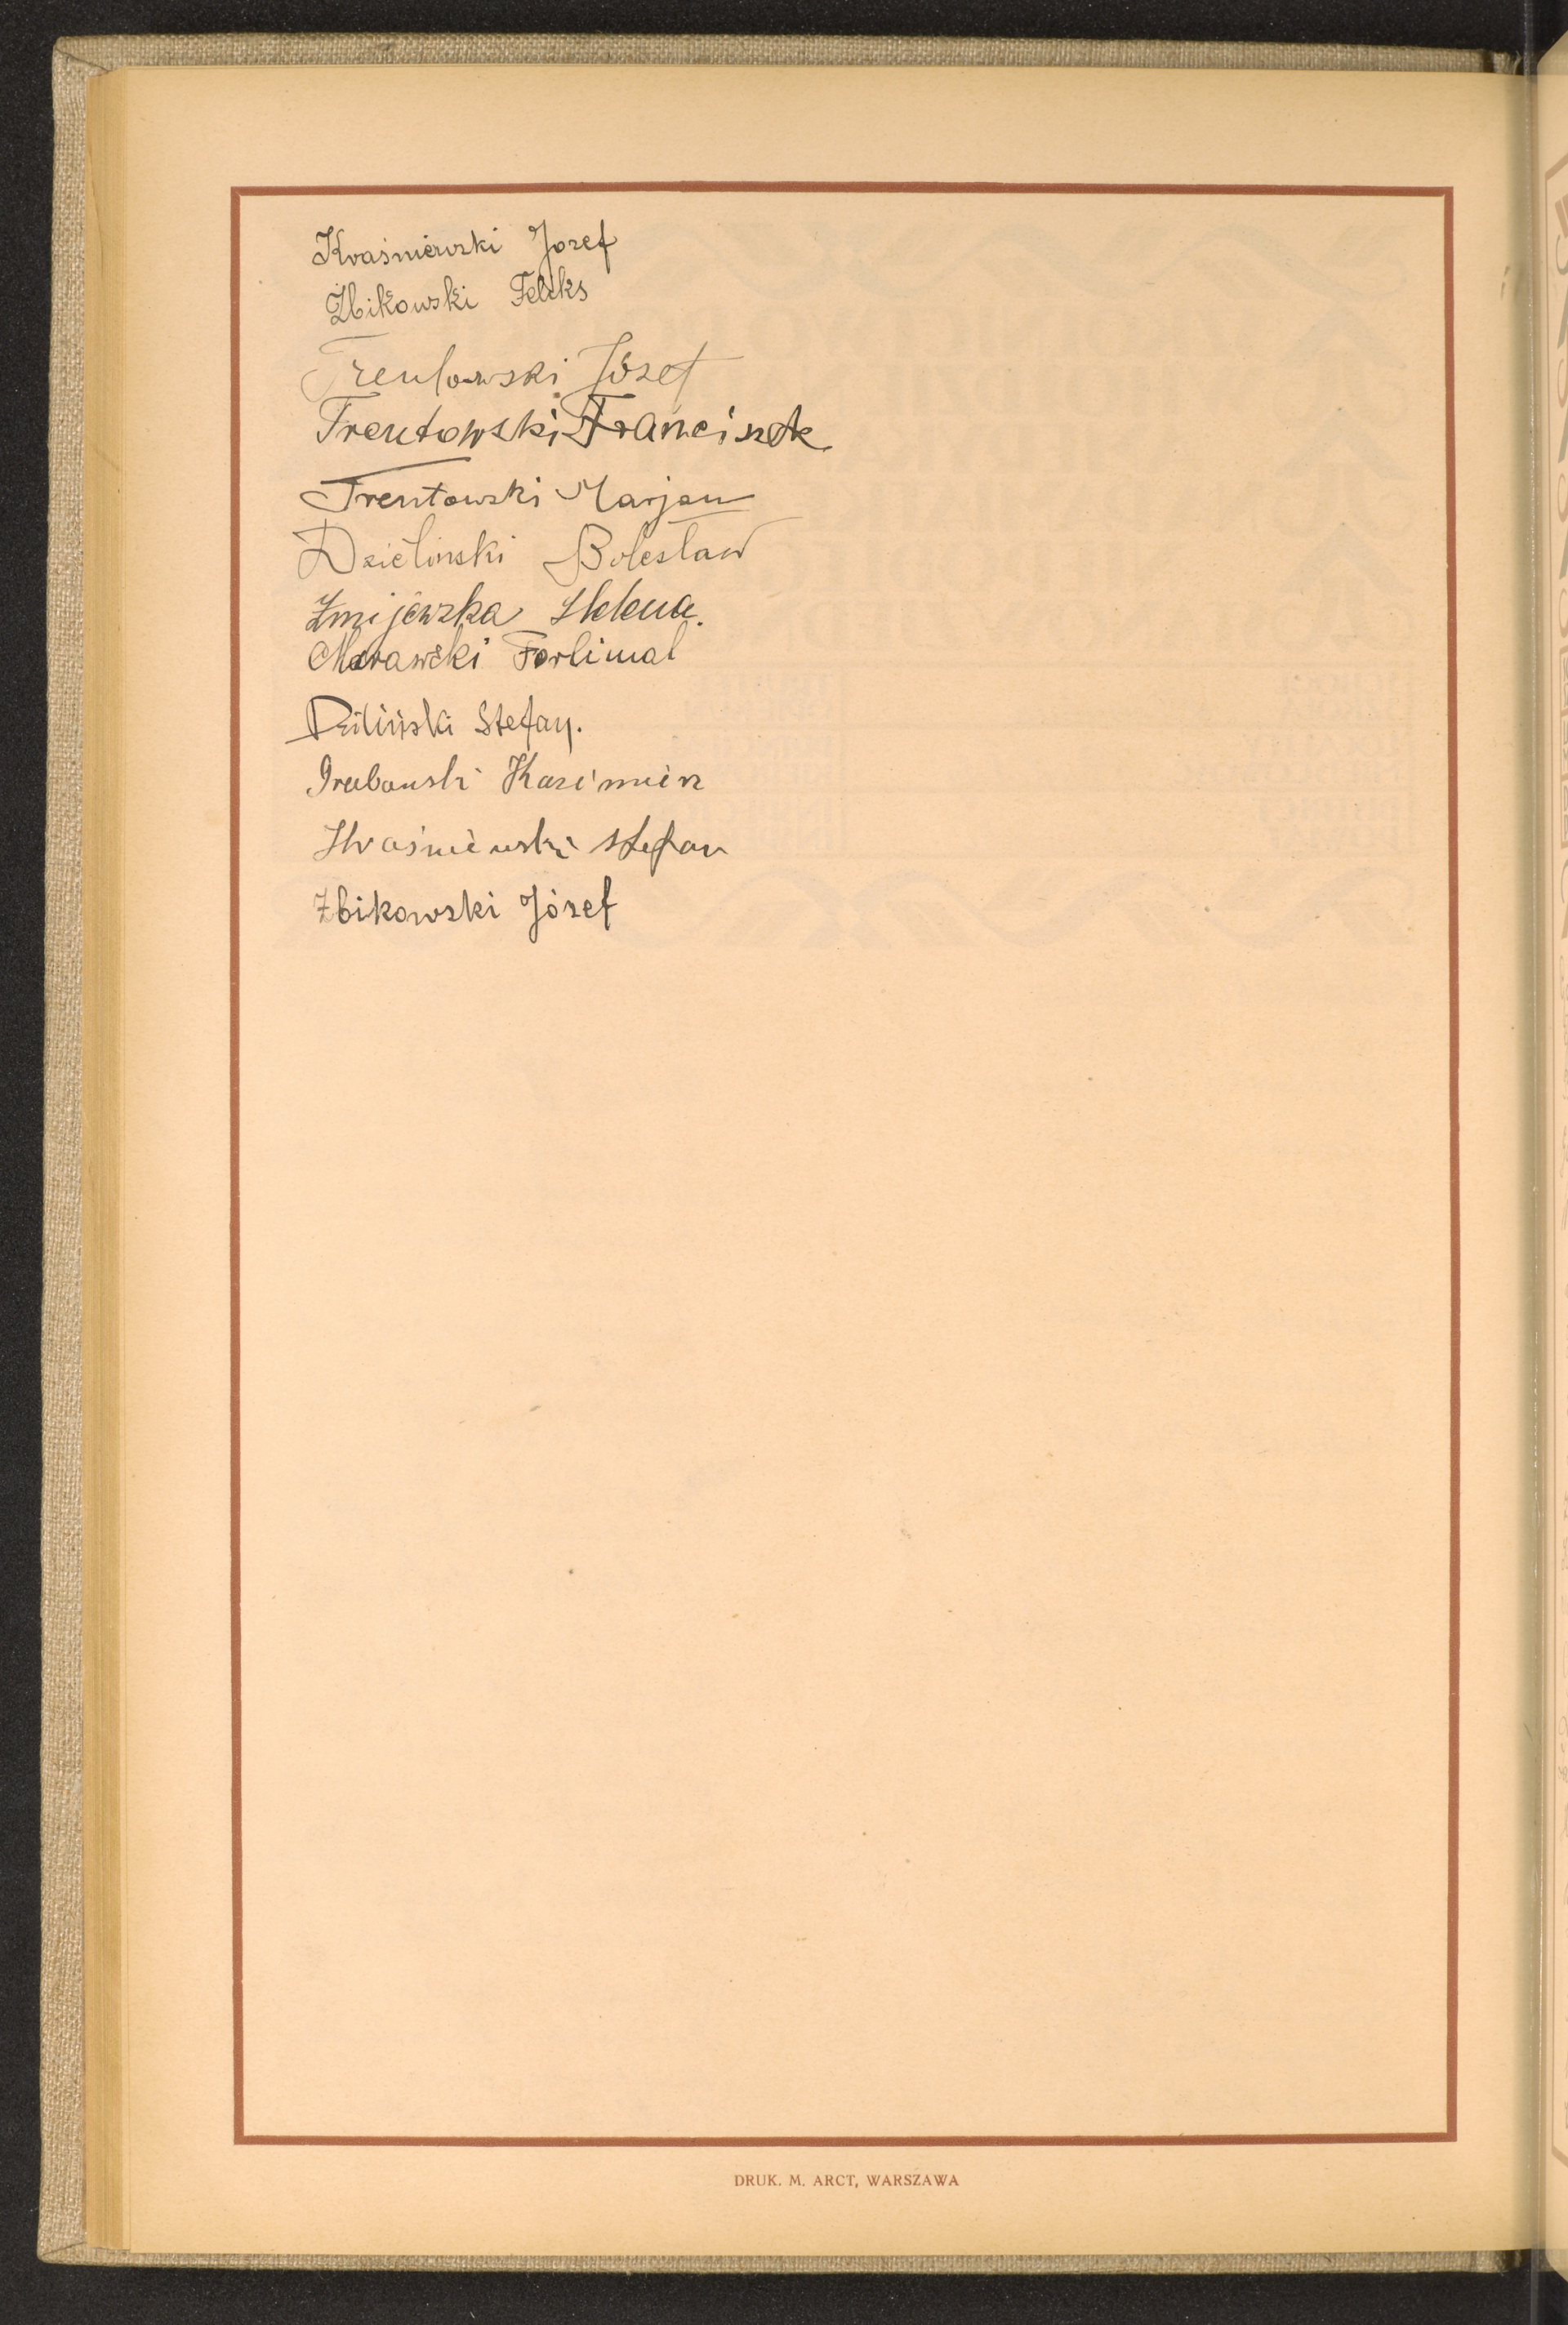 Kvaśniewski Jozef
Żbikowski Feliks
Trentowski Józef
Trentowski Franciszek
Trentowski Marjan
Dzieliński Bolesław
Żmijewska Helena.
Morawski
Dziliński Stefan.
Grabowski Kazimierz
Kwaśniewski Stefan
Zbikowski Józef
DRUK. M. ARCT, WARSZAWA